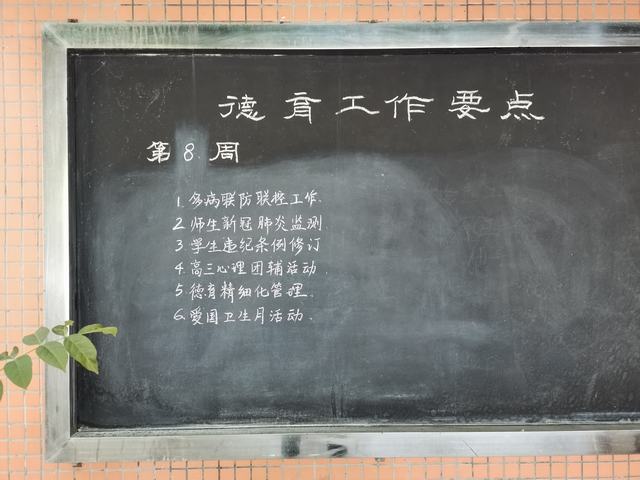 德育工作要点
第8周
1.多病联防联控工作.
2.师生新冠肺炎监测
3 学生违纪条例修订
4.高三心理团辅活动.
5.德育精细化管理.
6.爱国卫生月活动.